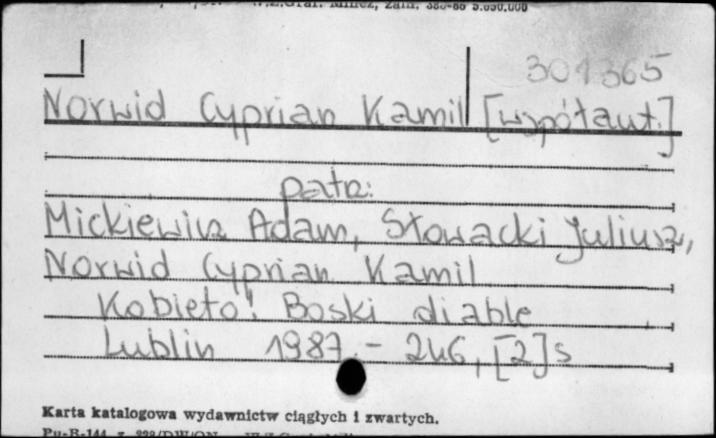 301365
Norwid Cyprian Kamil [współaut.]
patrz:
Mickiewicz Adam, Słowacki Juliusz,
Norwid Cyprian Kamil
Kobieto! Boski diable
Lublin 1987. – 246, [2] s
Karta katalogowa wydawnictw ciągłych i zwartych.